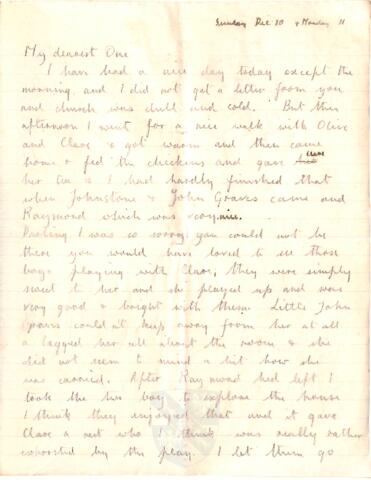 Sunday Dec 10 & Monday 11
My dearest One
I have had a nice day today except the
morning, and I did not get a letter from you
and church was dull and cold. But this
afternoon I went for a nice walk with Olive
and Clare & got warm and then came
home & fed the chickens and gave Clare
her tea & I had hardly finished that
when Johnstone & John Graves came and
Raymond which was very nice.
Darling I was so sorry you could not be
there you would have loved to see those
boys playing with Clare, they were simply
sweet to her and she played up and was
very good & bright with them. Little John
Graves could not keep away from her at all
& lagged her all about the room & she
did not seem to mind a bit how she
was carried. After Raymond had left I
took the two boys to explore the house
I think they enjoyed that and it gave
Clare a rest who I think was really rather
exhausted by the play. I let them go